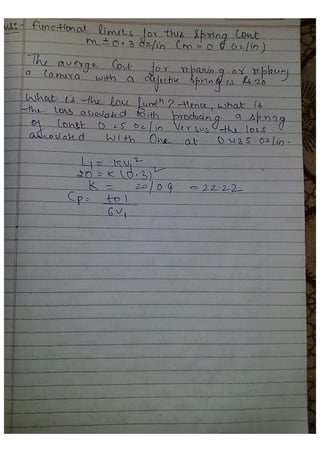 Functional limits for this Spring Cont
m ± 0.3 oz/in (m = 0.5 oz/in)
The averge Cost for reparing or replacing
a camera with a defective spring is Rs 20
What is the loss funth? Hence, what is
the loss assoiated with producing a spring
of Const 0.25 oz/in Versus the loss
assoiated With One at 0.435 oz/in.
L1 = KV1²
20 = K (0.3)²
K = 20/09 = 22.22
Cp = tol
6V1